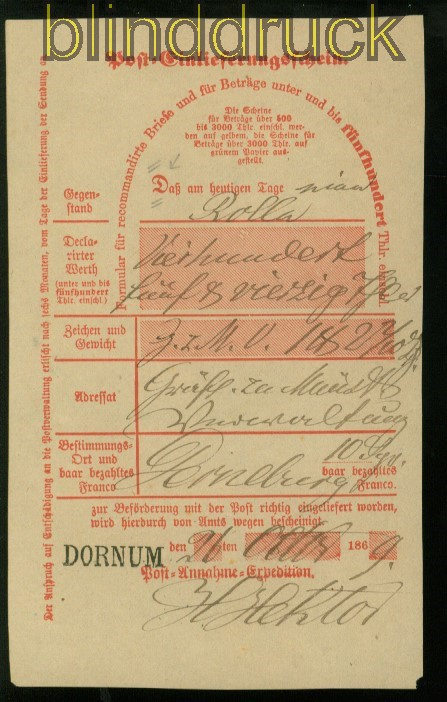 blinddruck
Post-Einlieferungsschein.
Formular für recommandirte Briefe und für Beträge unter und bis fünfhundert Thlr. einschl.
Die Scheine
für Beträge über 500
bis 3000 Thlr. einschl. wer-
den auf gelbem, die Scheine für
Beträge über 3000 Thlr. auf
grünem Papier aus-
gestellt.
Gegen-
stand
Daß am heutigen Tage eine
Rolle
Decla-
rirter
Werth
(unter und bis
fünfhundert
Thlr. einschl.)
Vierhundert
fünf & vierzig
Zeichen und
Gewicht
Adressat
Gräfl. zu Münst
Verwaltung
Bestimmungs-
Ort und
baar bezahltes
Franco
10
baar bezahltes
Franco.
zur Beförderung mit der Post richtig eingeliefert worden,
wird hierdurch von Amts wegen bescheinigt.
DORNUM den 21 ten 1869.
Post-Annahme-Expedition.
Der Anspruch auf Entschädigung an die Postverwaltung erlischt nach sechs Monaten, vom Tage der Einlieferung der Sendung an